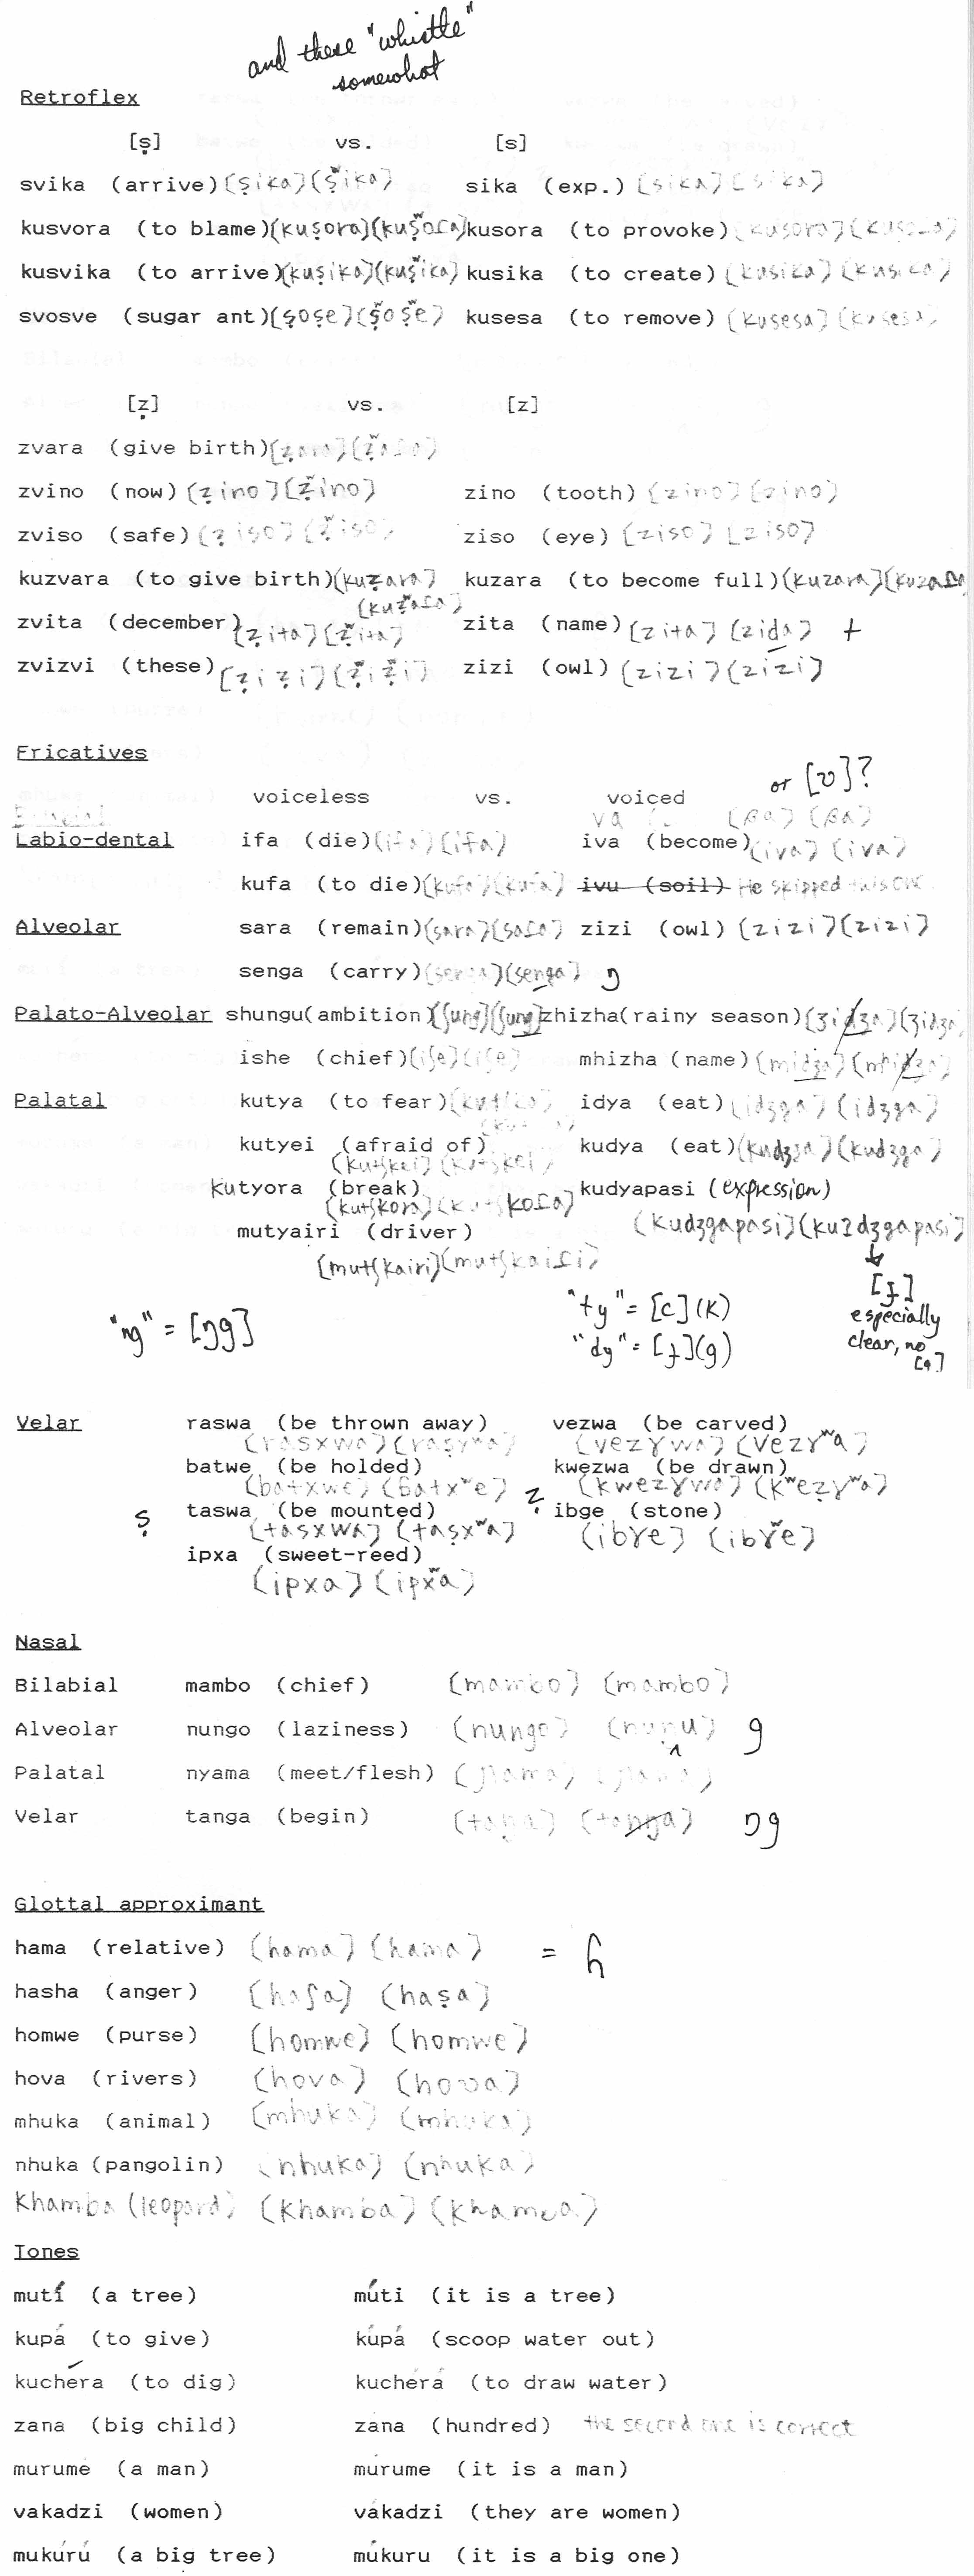 and these "whistle"
somewhat
Retroflex
[ṣ] vs. [s]
svika (arrive) [ṣika] [ṣ̌ika] sika (exp.) [sika] [sika]
kusvora (to blame) [kuṣora] [kuṣʷoɾa] kusora (to provoke) [kusora] [kusoɾa]
kusvika (to arrive) [kuṣika] [kuṣʷika] kusika (to create) [kusika] [kusika]
svosve (sugar ant) [ṣoṣe] [ṣʷoṣʷe] kusesa (to remove) [kusesa] [kusesa]
[ẓ] vs. [z]
zvara (give birth) [ẓara] [ẓʷaɾa]
zvino (now) [ẓino] [ẓʷino] zino (tooth) [zino] [zino]
zviso (safe) [ẓiso] [ẓʷiso] ziso (eye) [ziso] [ziso]
kuzvara (to give birth) [kuẓara] kuzara (to become full) [kuzara] [kuzaɾa]
[kuẓʷaɾa]
zvita (december) [ẓita] [ẓʷita] zita (name) [zita] [zida] t
zvizvi (these) [ẓiẓi] [ẓʷiẓʷi] zizi (owl) [zizi] [zizi]
Fricatives
or [ʋ]?
voiceless vs. voiced
va [βa] [βa]
Labio-dental ifa (die) [ifa] [ifa] iva (become) [iva] [iva]
kufa (to die) [kufa] [kufa] ivu (soil) He skipped this one.
Alveolar sara (remain) [sara] [saɾa] zizi (owl) [zizi] [zizi]
senga (carry) [senga] [senga] ŋ
Palato-Alveolar shungu(ambition) [ʃung] [ʃung] zhizha(rainy season) [ʒidʒa] [ʒidʒa]
ishe (chief) [iʃe] [iʃe] mhizha (name) [midʒa] [mhidʒa]
Palatal kutya (to fear) [kutʃka] idya (eat) [idʒga] [idʒga]
kutyei (afraid of) kudya (eat) [kudʒga] [kudʒga]
[kutʃkei] [kutʃkei]
kutyora (break) kudyapasi (expression)
[kutʃkora] [kutʃkoɾa]
mutyairi (driver) [kudʒgapasi] [kuɪdʒgapasi]
[mutʃkairi] [mutʃkaiɾi]
↓
[ɟ]
especially
clear, no
[g]
"ng" = [ŋg]
"ty" = [c](k)
"dy" = [ɟ](g)
Velar raswa (be thrown away) vezwa (be carved)
[rasxwa] [raṣɣʷa] [vezɣwa] [vezɣʷa]
batwe (be holded) kwezwa (be drawn)
[batxwe] [batxʷe] ẓ [kwezɣwa] [kʷeẓɣʷa]
ṣ taswa (be mounted) ibge (stone)
[tasxwa] [taṣxʷa] [ibɣe] [ibɣʷe]
ipxa (sweet-reed)
[ipxa] [ipxʷa]
Nasal
Bilabial mambo (chief) [mambo] [mambo]
Alveolar nungo (laziness) [nungo] [nuŋu] g
Palatal nyama (meet/flesh) [ɲama] [ɲama]
Velar tanga (begin) [taŋa] [taŋga] ŋg
Glottal approximant
hama (relative) [hama] [hama] = ɦ
hasha (anger) [haʃa] [haṣa]
homwe (purse) [homwe] [homwe]
hova (rivers) [hova] [hoʋa]
mhuka (animal) [mhuka] [mhuka]
nhuka (pangolin) [nhuka] [nhuka]
Khamba (leopard) [Khamba] [Khamba]
Tones
mutí (a tree) múti (it is a tree)
kupá (to give) kúpá (scoop water out)
kuchéra (to dig) kuchérá (to draw water)
zana (big child) zána (hundred) the second one is correct
murumé (a man) múrume (it is a man)
vakadzi (women) vákadzi (they are women)
mukúrú (a big tree) múkuru (it is a big one)